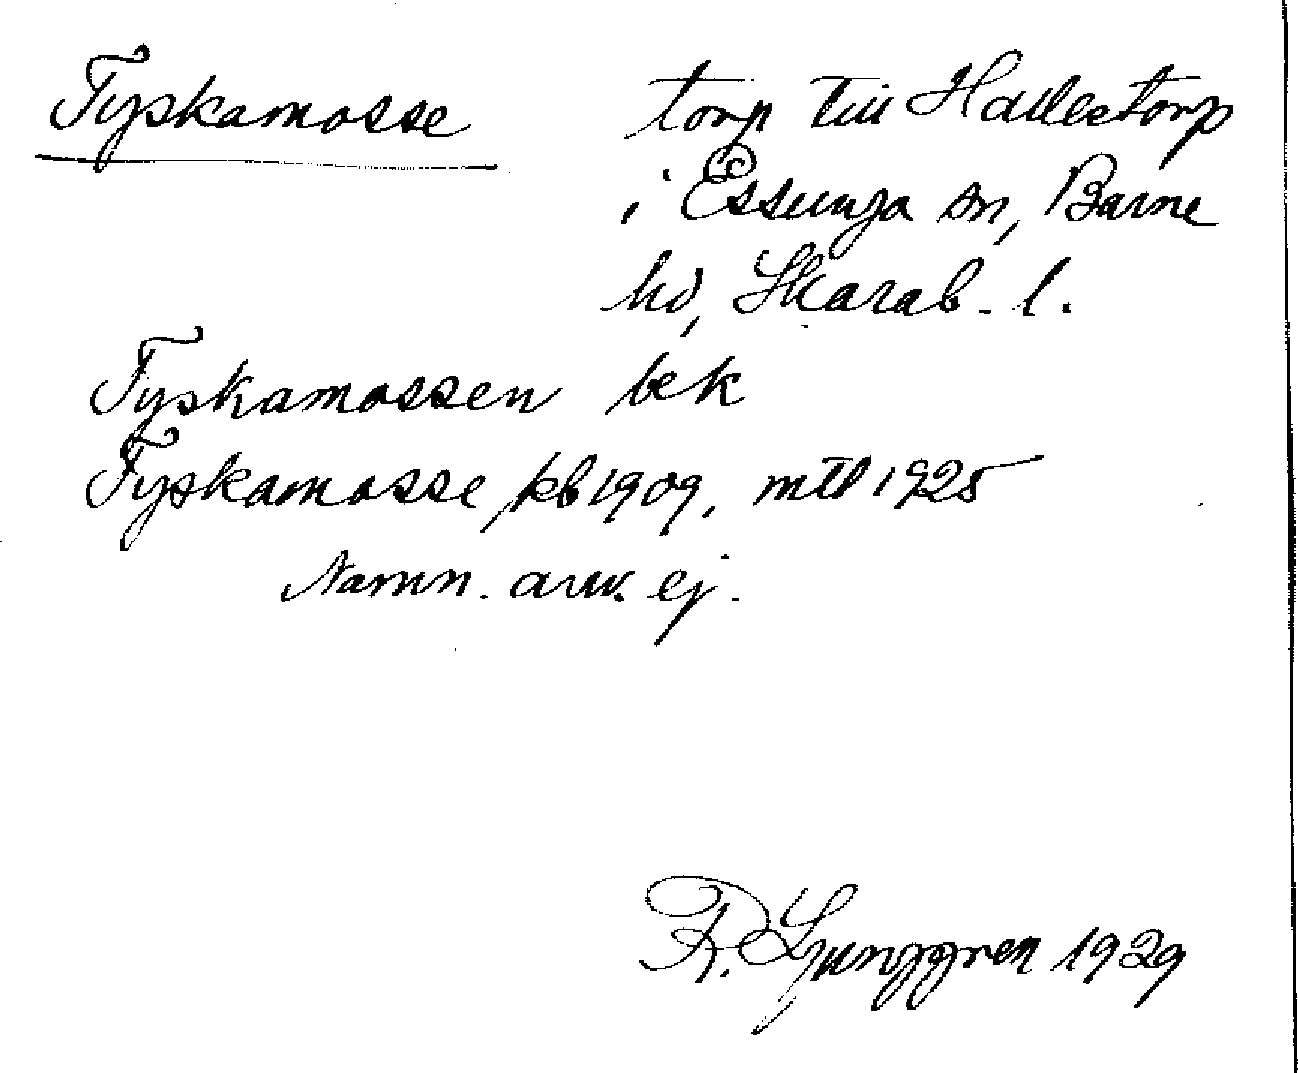 Tyskamosse
torp till Hallestorp
i Essunga sn, Barne
hd, Skarab. l.
Tyskamossen bek
Tyskamosse kb 1909, mtl 1925
Namn. anv. ej.
R. Ljunggren 1929